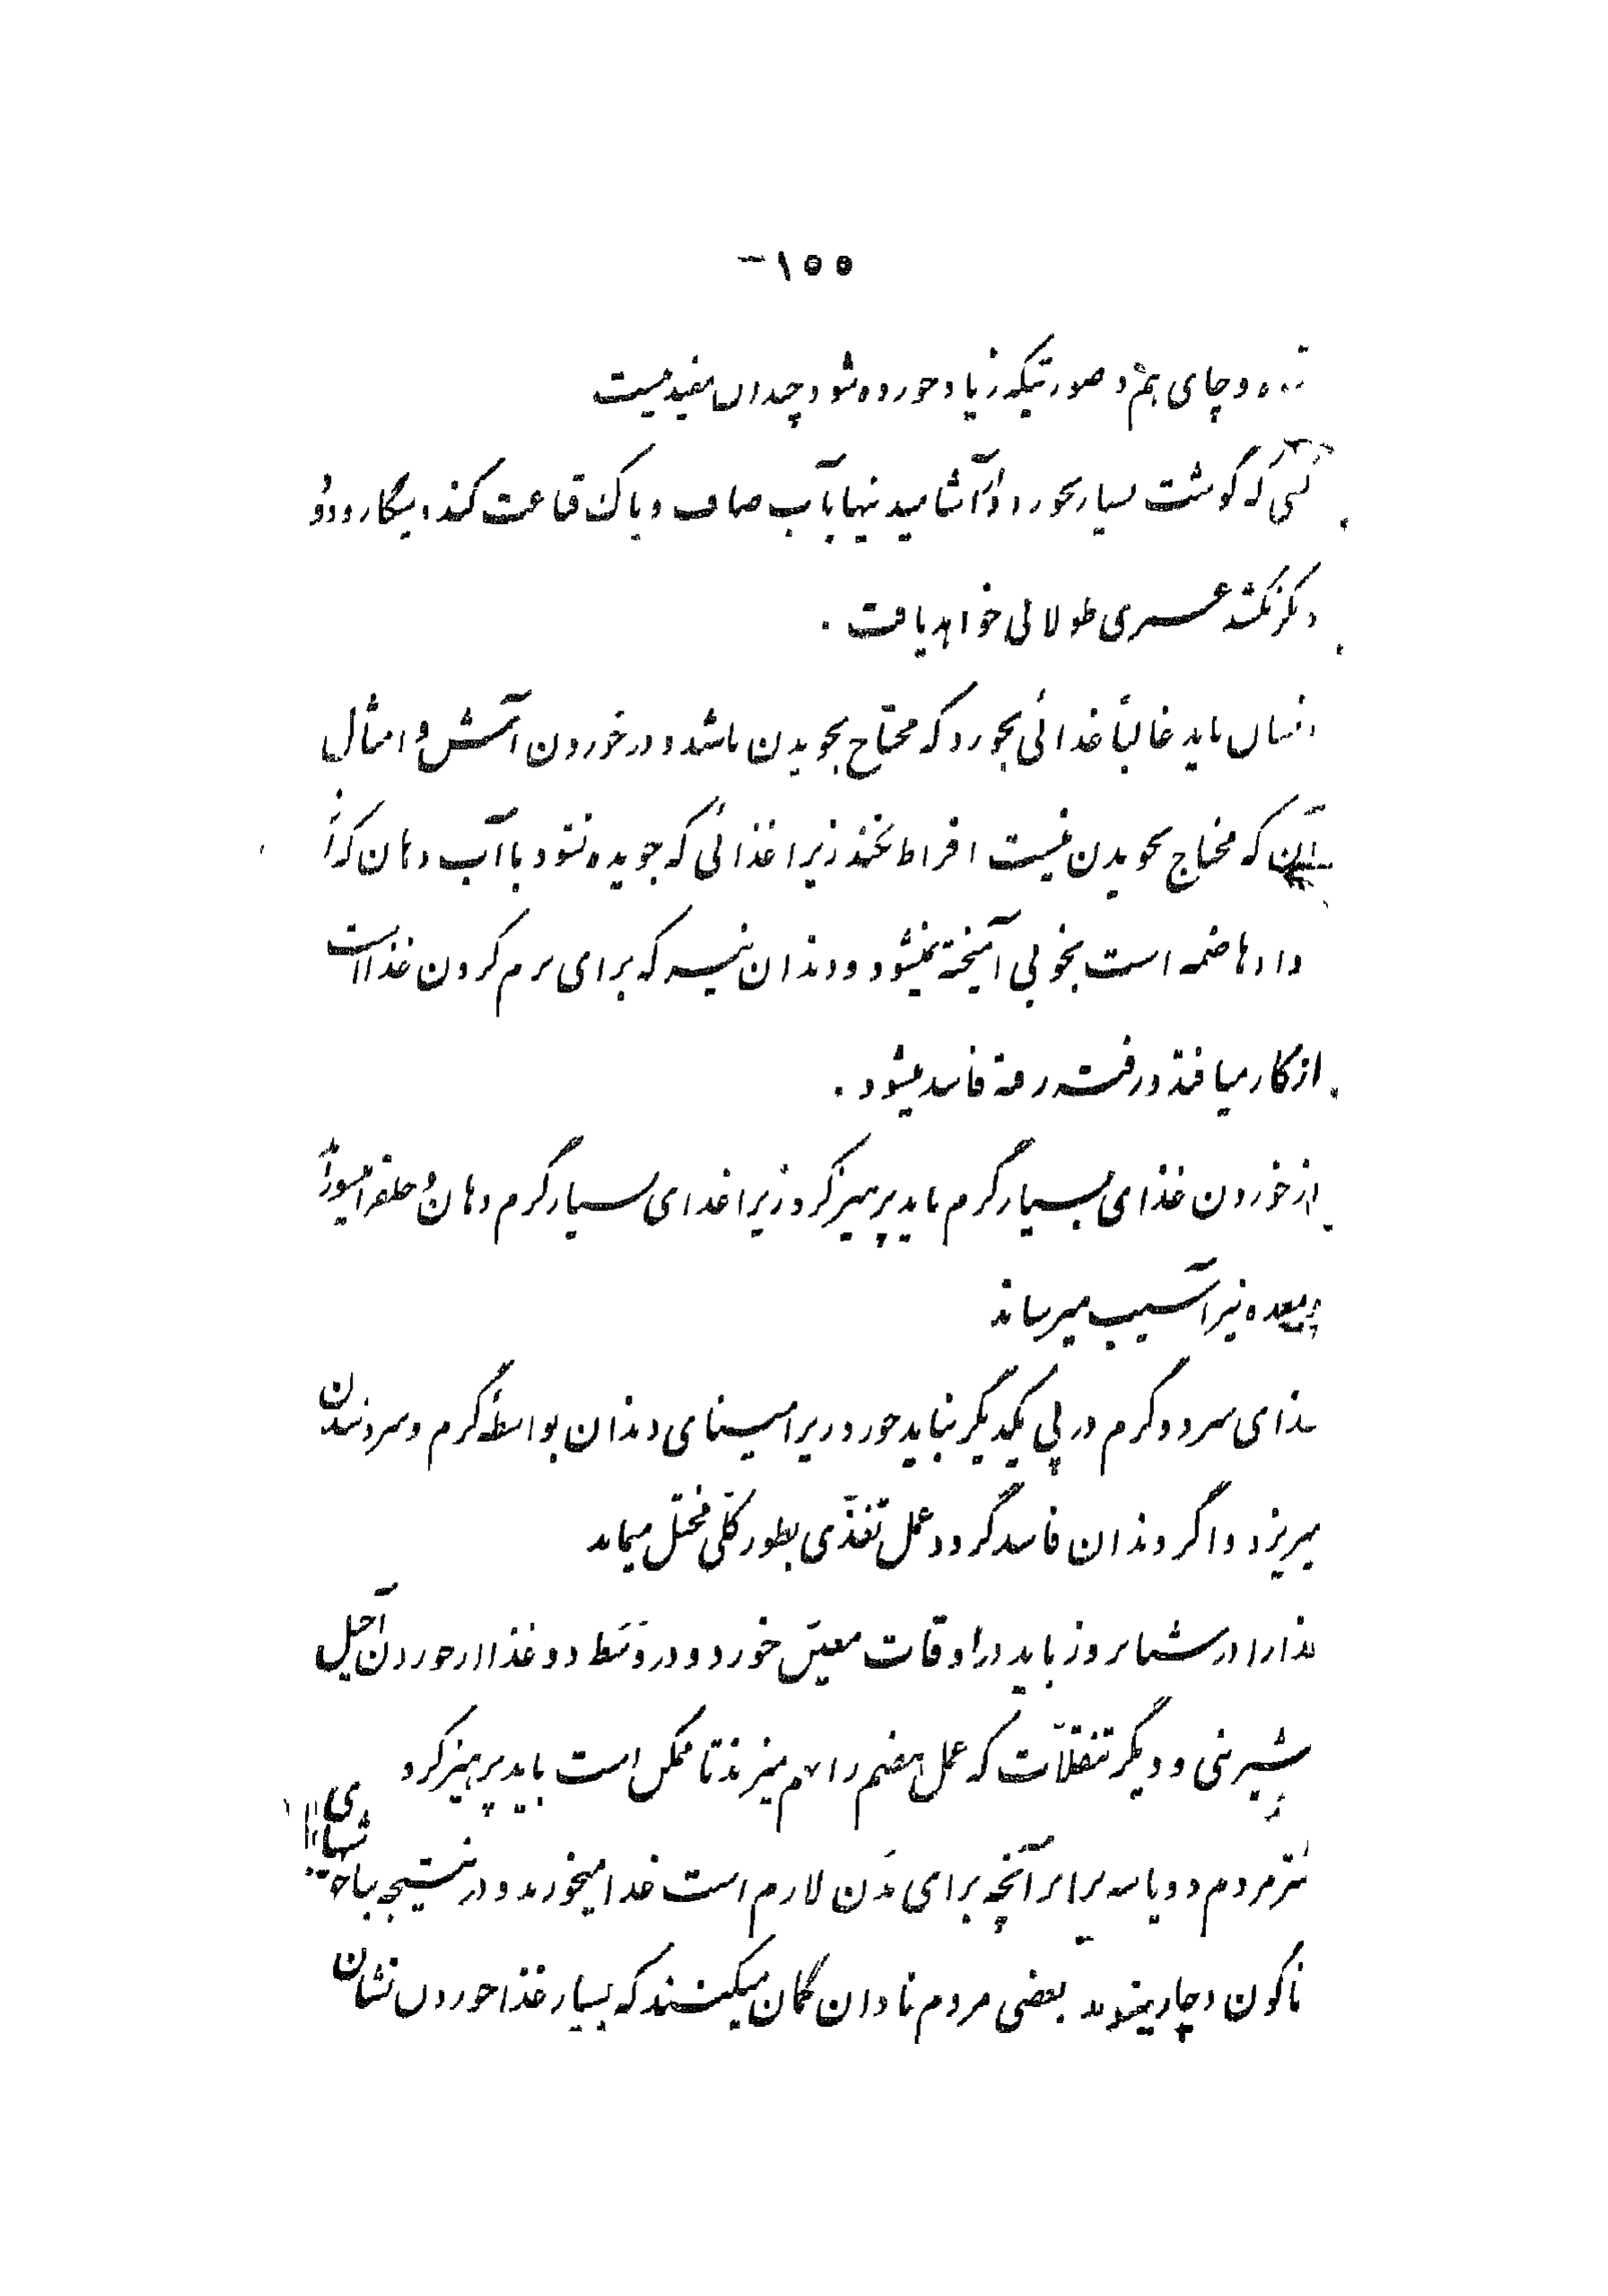 -۱۵۵
و چای هم در صورتیکه زیاد خورده شود چندان مفید نیست
کسی که گوشت بسیار نخورد و از آشامیدنیها بآب صاف و پاک قناعت کند و سیگار و دود
دیگر نکشد عمری طولانی خواهد یافت .
انسان باید غالباً غذائی بخورد که محتاج بجویدن باشد و در خوردن آتش و امثال
آن که محتاج بجویدن نیست افراط نکند زیرا غذائی که جویده نشود با آب دهان که از
هاضمه است بخوبی آمیخته نمیشود و دندان نیز که برای نرم کردن غذا است
از کار میافتد و رفته رفته فاسد میشود .
از خوردن غذای بسیار گرم باید پرهیز کرد زیرا غذای بسیار گرم دهان و حلق را میسوزاند
و بمعده نیز آسیب میرساند
غذای سرد و گرم در پی یکدیگر نباید خورد زیرا مینای دندان بواسطهٔ گرم و سرد شدن
میریزد و اگر دندان فاسد گردد عمل تغذّی بطور کلّی مختل میماند
غذا را در شبانروز باید در اوقات معیّن خورد و در وَسَط دو غذا از خوردن آجیل
شیرینی و دیگر تنقلّات که عمل هضم را بهم میزند تا ممکن است باید پرهیز کرد
مردم دو یا سه برابر آنچه برای بَدَن لازم است غذا میخورند و در نتیجه بناخوشیهای
گون دچار میشوند بعضی مردم نادان گمان میکنند که بسیار غذا خوردن نشان